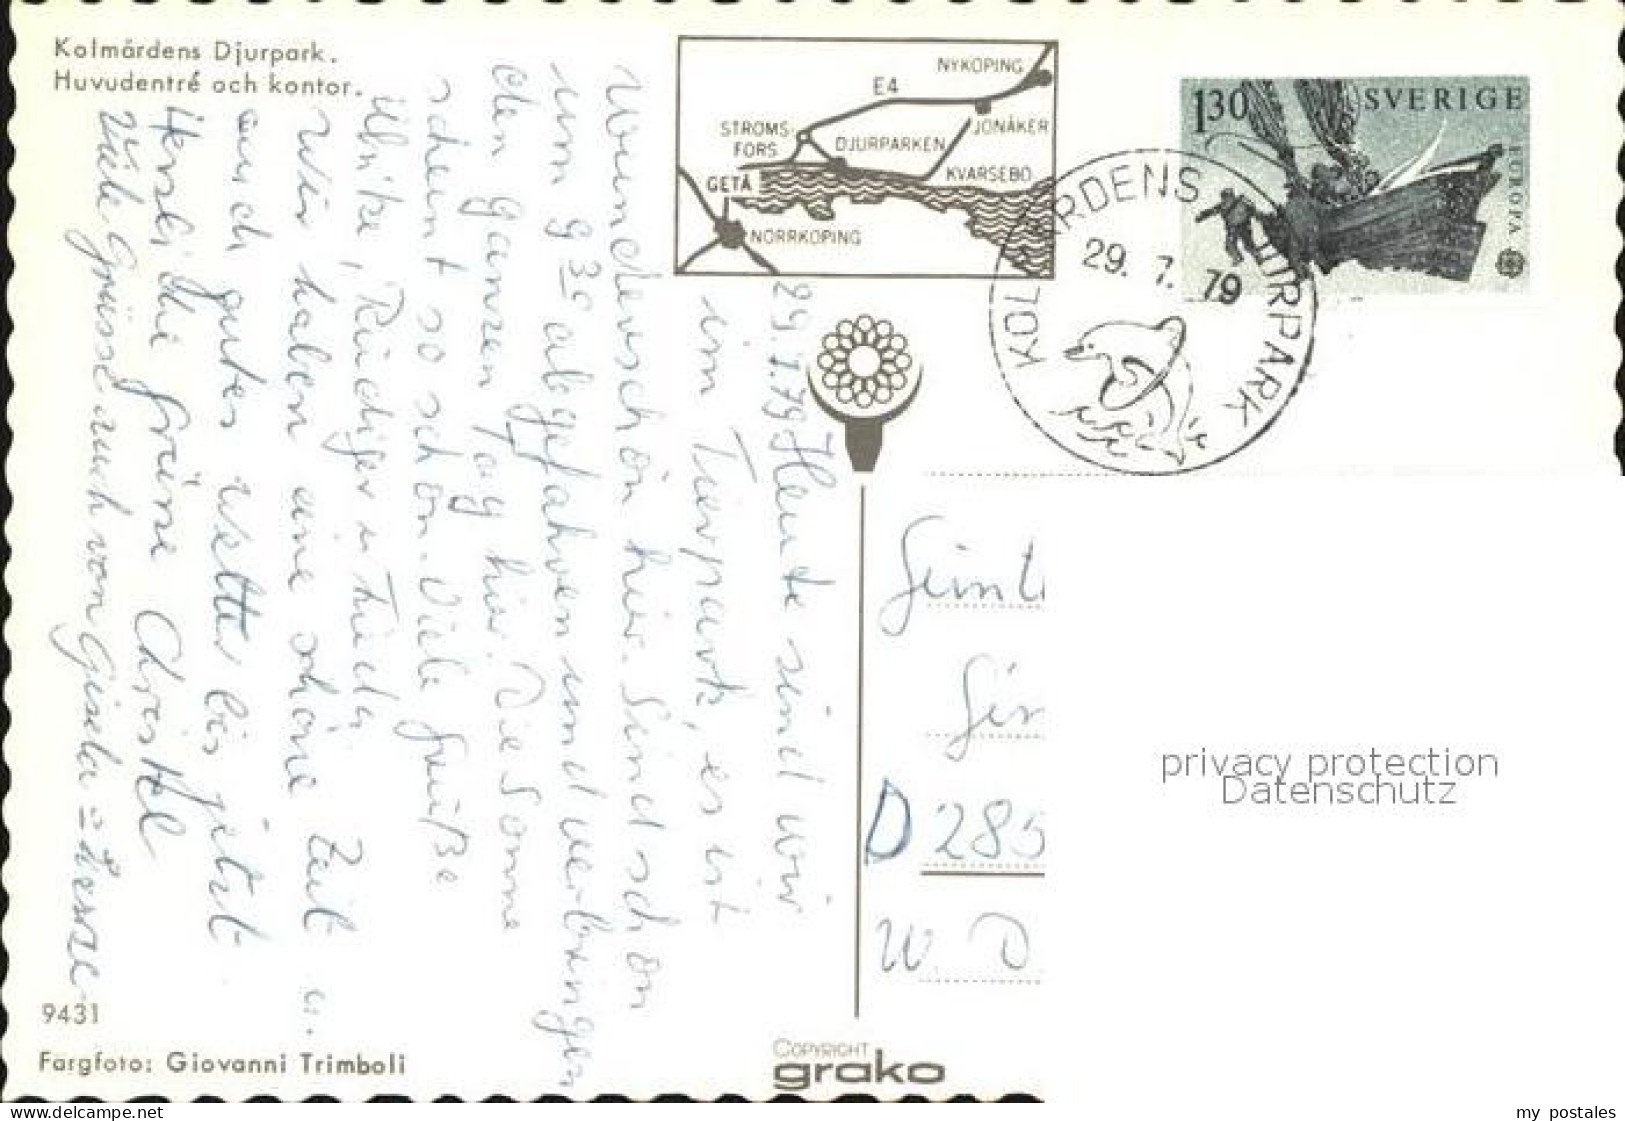 Kolmårdens Djurpark.
Huvudentré och kontor.
NYKÖPING
E4
STRÖMS-
FORS
JONÅKER
DJURPARKEN
KVARSEBO
GETÅ
NORRKÖPING
1,30 SVERIGE
EUROPA
KOLMÅRDENS DJURPARK
29. 7. 79
29.7.79 Heute sind wir
im Tierpark, es ist
wunderschön hier. Sind schon
um 9 30 abgefahren und verbringen
den ganzen Tag hier. Die Sonne
scheint so schön. Viele Grüße
Ulrike, Rüdiger u.
Wir haben eine schöne Zeit u.
auch gutes Wetter bis jetzt.
Herzliche Grüsse Christel
Viele Grüsse auch von Gisela
D 285
W. D
privacy protection
Datenschutz
9431
Färgfoto: Giovanni Trimboli
COPYRIGHT
grako
www.delcampe.net
my_postales